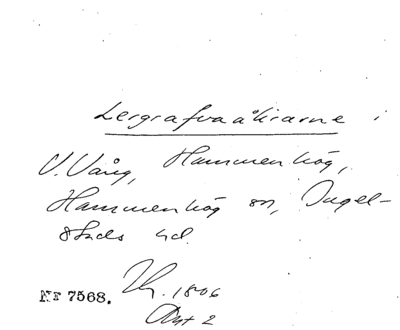 Lergrafvaåkrarne i
V. Vång, Hammenhög,
Hammenhög sn, Ingel-
stads hd.
Nr 7568.
1806
Akt 2